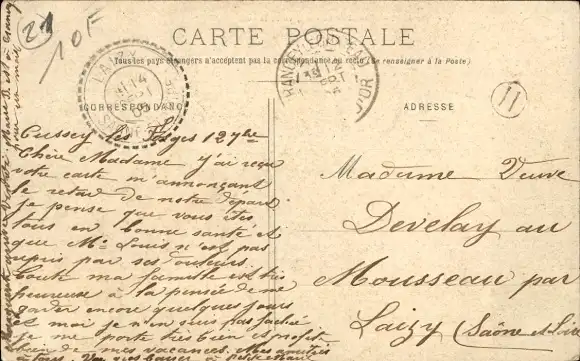 21
10F
CARTE POSTALE
Tous les pays étrangers n'acceptent pas la correspondance au recto (Se renseigner à la Poste)
CORRESPONDANCE
ADRESSE
LAIZY
D'OR
Cussey les Forges 12 7bre
Chère Madame j'ai reçu
votre carte m'annonçant
le retard de notre départ
je pense que vous êtes
tous en bonne santé et
que Mr Louis n'est pas
repris par ses douleurs.
Toute ma famille est très
heureuse à la pensée de me
garder encore quelques jours
et moi je n'en suis pas fachée
je me porte très bien et profite
bien de mes vacances. Mes amitiés
à tous.
Madame Veuve
Develay au
Mousseau par
Laizy (Saône et Loire